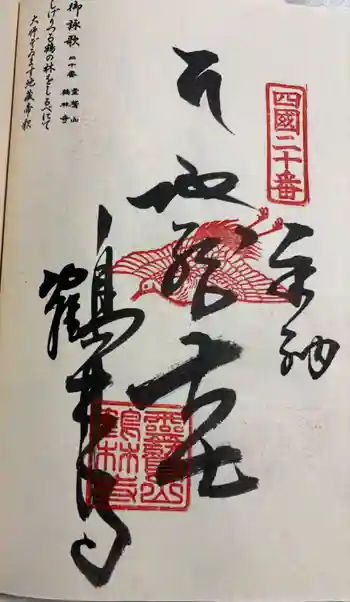 四國二十番
奉納
地蔵大士
鶴林寺
靈鷲山
鶴林寺
御詠歌 二十番 霊鷲山 鶴林寺
しげりつる鶴の林をしるべにて
大師ぞいます地蔵帝釈